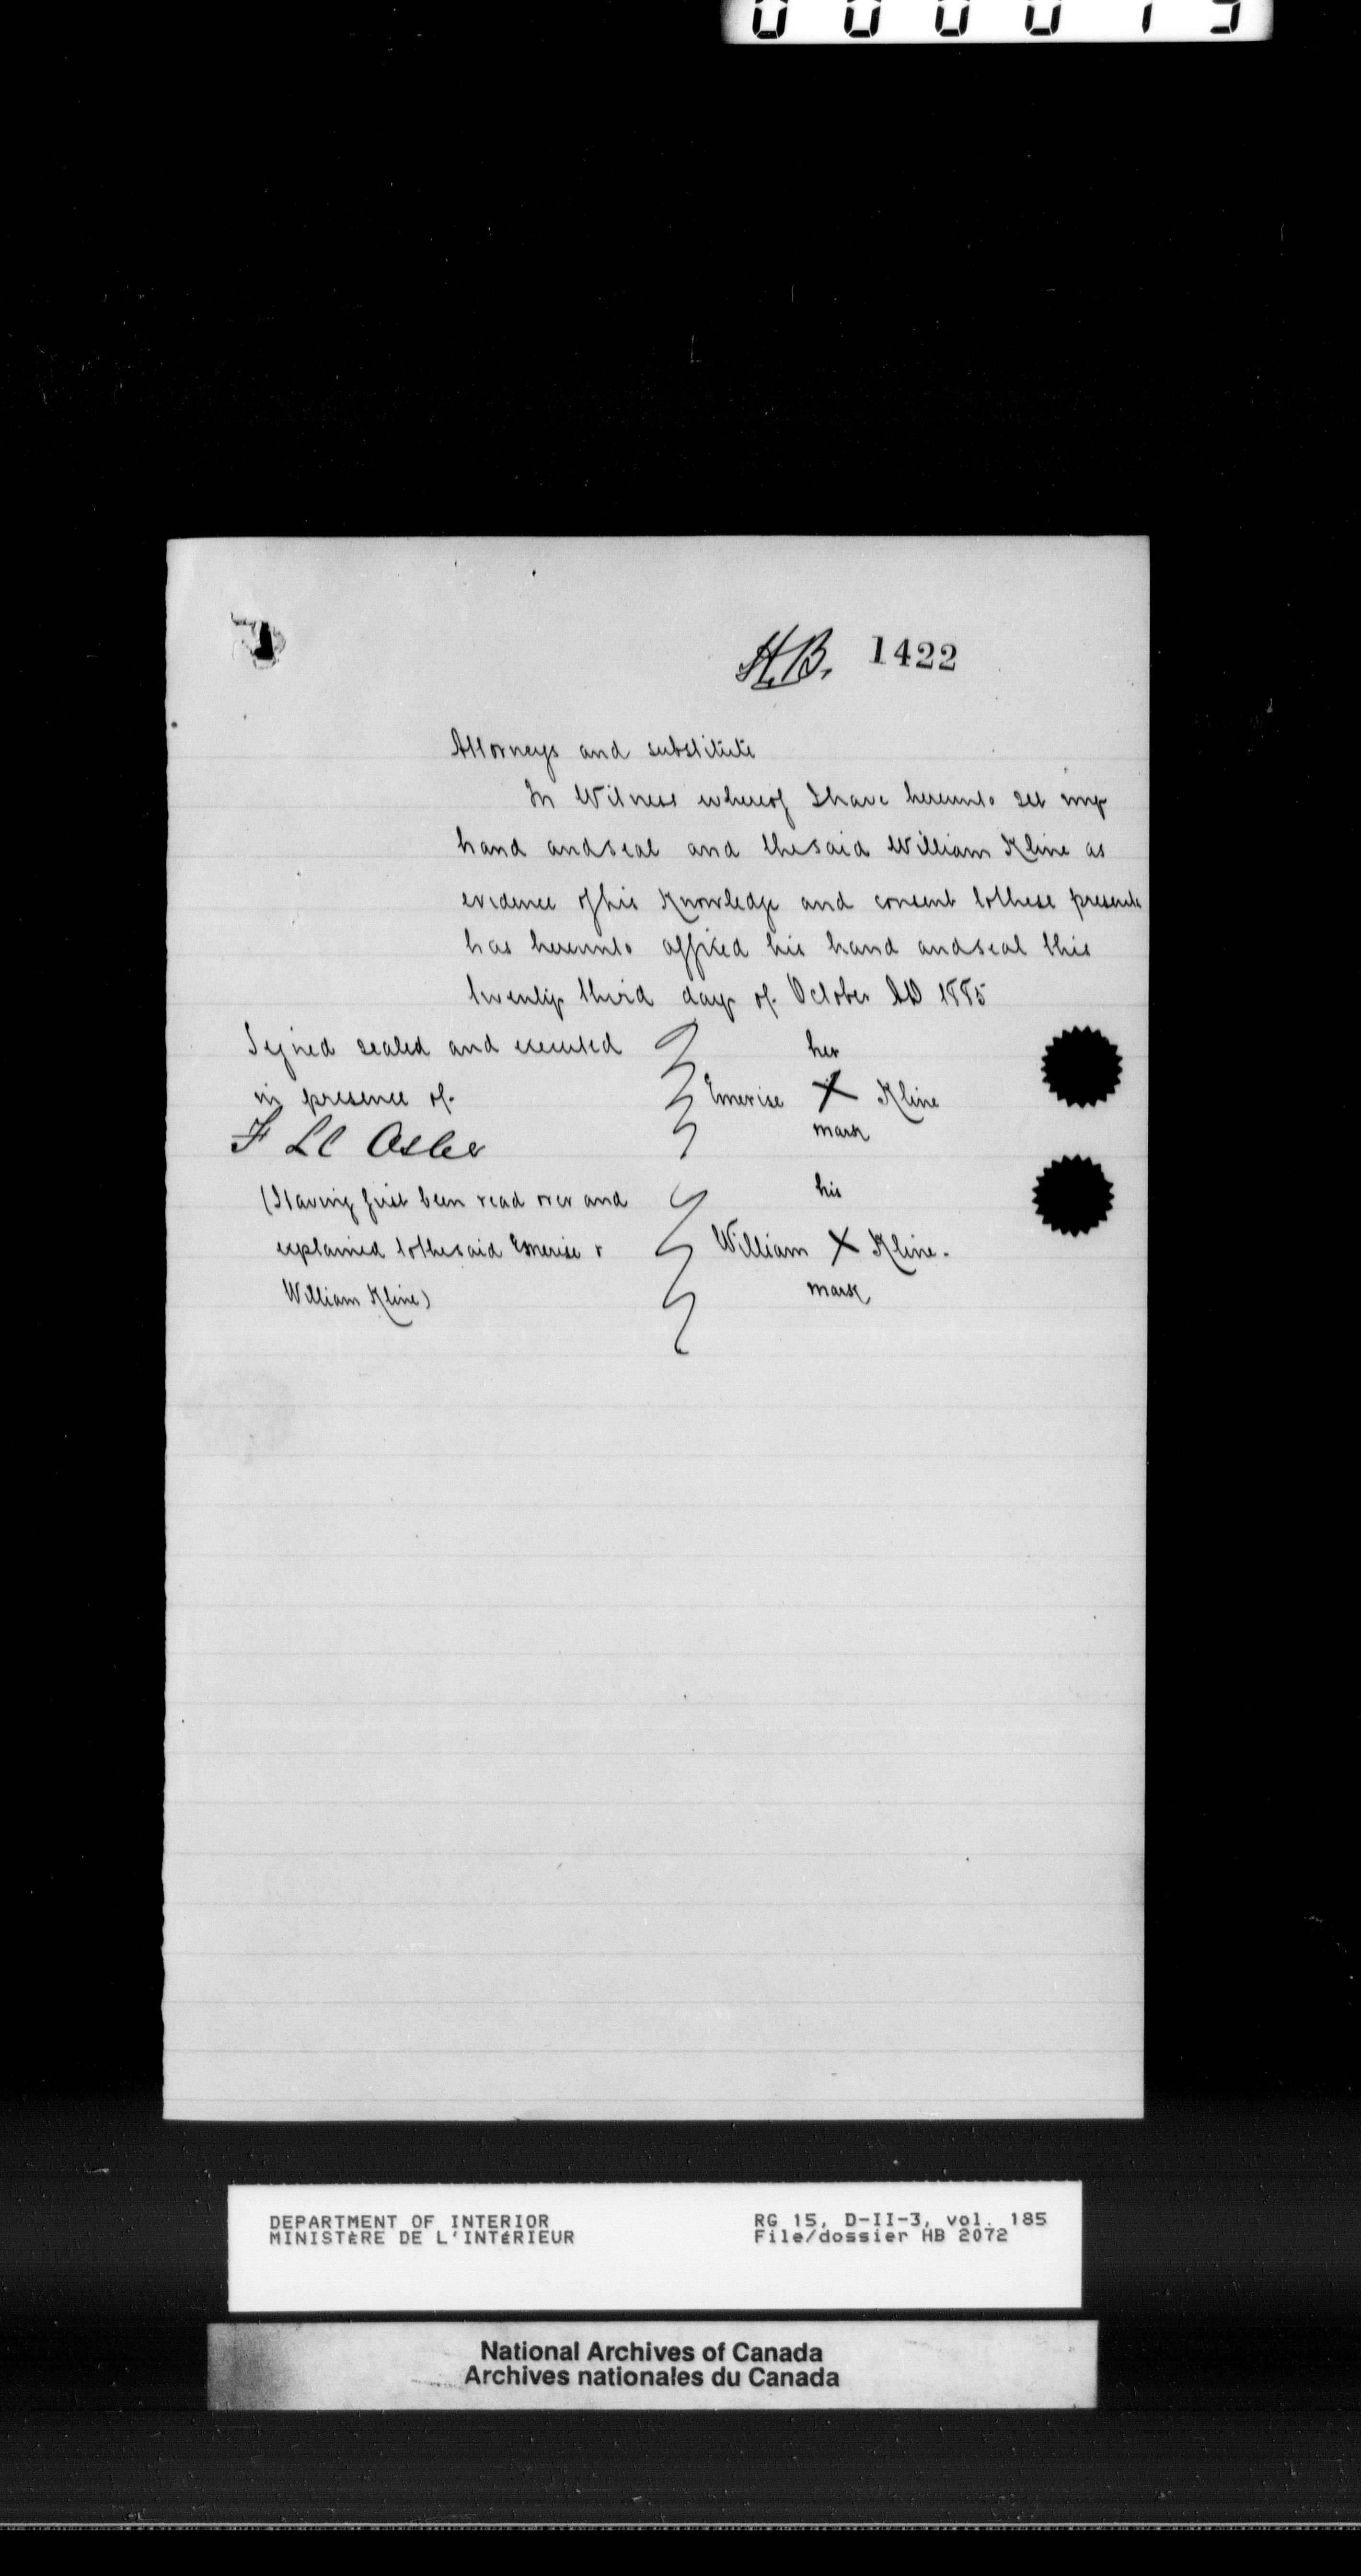 H.B. 1422
Attorneys and substitute
In Witness whereof I have hereunto set my
hand and seal and the said William Kline as
evidence of his Knowledge and consent to these presents
has hereunto affixed his hand and seal this
twenty third day of October AD 1885
Signed sealed and executed
in presence of
F L C Osler
(Having first been read over and
explained to the said Emerise &
William Kline)
her
Emerise X Kline
mark
his
William X Kline.
mark
DEPARTMENT OF INTERIOR
MINISTÈRE DE L'INTÉRIEUR
RG 15, D-II-3, vol. 185
File/dossier HB 2072
National Archives of Canada
Archives nationales du Canada